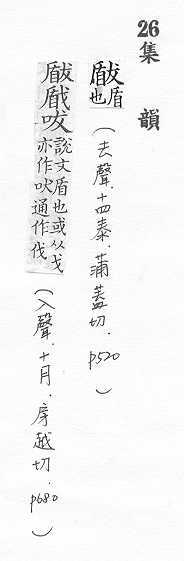 26集 韻
瞂 盾也 (去聲.十四泰.蒲蓋切.p520)
瞂 說文盾也或从戈亦作吠通作伐 (入聲.十月.房越切.p680)